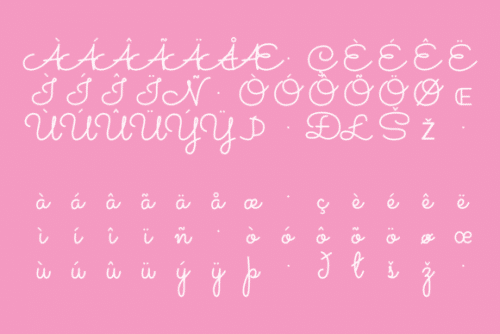 À Á Â Ã Ä Å Æ · Ç È É Ê Ë
Ì Í Î Ï Ñ · Ò Ó Ô Õ Ö Ø Œ
Ù Ú Û Ü Ý Ÿ Þ · Đ Ł Š ž ·
à á â ã ä å æ · ç è é ê ë
ì í î ï ñ · ò ó ô õ ö ø œ
ù ú û ü ý ÿ þ · ł š ž ·